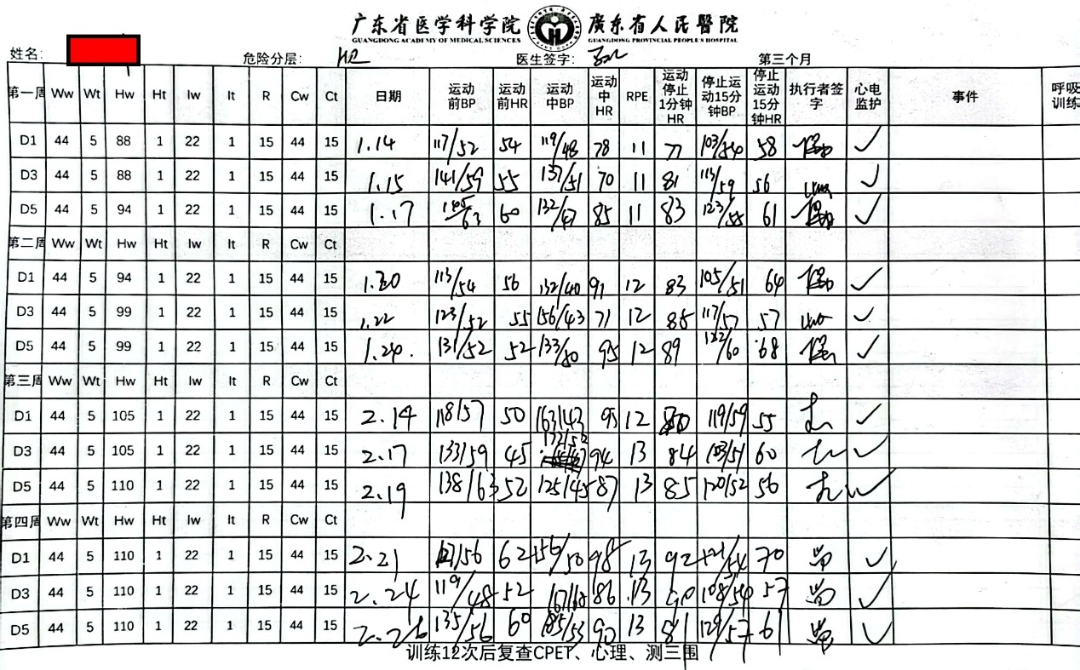 广东省医学科学院 廣东省人民醫院
GUANGDONG ACADEMY OF MEDICAL SCIENCES GUANGDONG PROVINCIAL PEOPLE'S HOSPITAL
姓名: 危险分层: 医生签字: 第三个月
第一周 Ww Wt Hw Ht Iw It R Cw Ct 日期 运动前BP 运动前HR 运动中BP 运动中HR RPE 运动停止1分钟HR 停止运动15分钟BP 停止运动15分钟HR 执行者签字 心电监护 事件 呼吸训练
D1 44 5 88 1 22 1 15 44 15 1.14 117/52 54 119/48 78 11 77 103/54 58 ✓
D3 44 5 88 1 22 1 15 44 15 1.15 141/59 55 137/51 70 11 81 113/59 56 ✓
D5 44 5 94 1 22 1 15 44 15 1.17 60 132/47 85 11 83 123/55 61 ✓
第二周 Ww Wt Hw Ht Iw It R Cw Ct
D1 44 5 94 1 22 1 15 44 15 1.20 113/54 56 132/40 91 12 83 105/51 64 ✓
D3 44 5 99 1 22 1 15 44 15 1.22 123/52 55 156/43 71 12 85 117/57 57 ✓
D5 44 5 99 1 22 1 15 44 15 1.24. 131/52 52 133/50 95 12 89 122/60 68 ✓
第三周 Ww Wt Hw Ht Iw It R Cw Ct
D1 44 5 105 1 22 1 15 44 15 2.14 118/57 50 163/43 95 12 119/59 55 ✓
D3 44 5 105 1 22 1 15 44 15 2.17 133/59 45 172/52 94 13 84 103/51 60 ✓
D5 44 5 110 1 22 1 15 44 15 2.19 138/63 52 125/45 87 13 85 120/52 56 ✓
第四周 Ww Wt Hw Ht Iw It R Cw Ct
D1 44 5 110 1 22 1 15 44 15 2.21 62 156/50 98 13 92 121/54 70 ✓
D3 44 5 110 1 22 1 15 44 15 2.24 119/48 52 86 13 90 108/54 57 ✓
D5 44 5 110 1 22 1 15 44 15 2.26 135/56 60 185/53 90 13 81 129/57 61 ✓
训练12次后复查CPET、心理、测三围